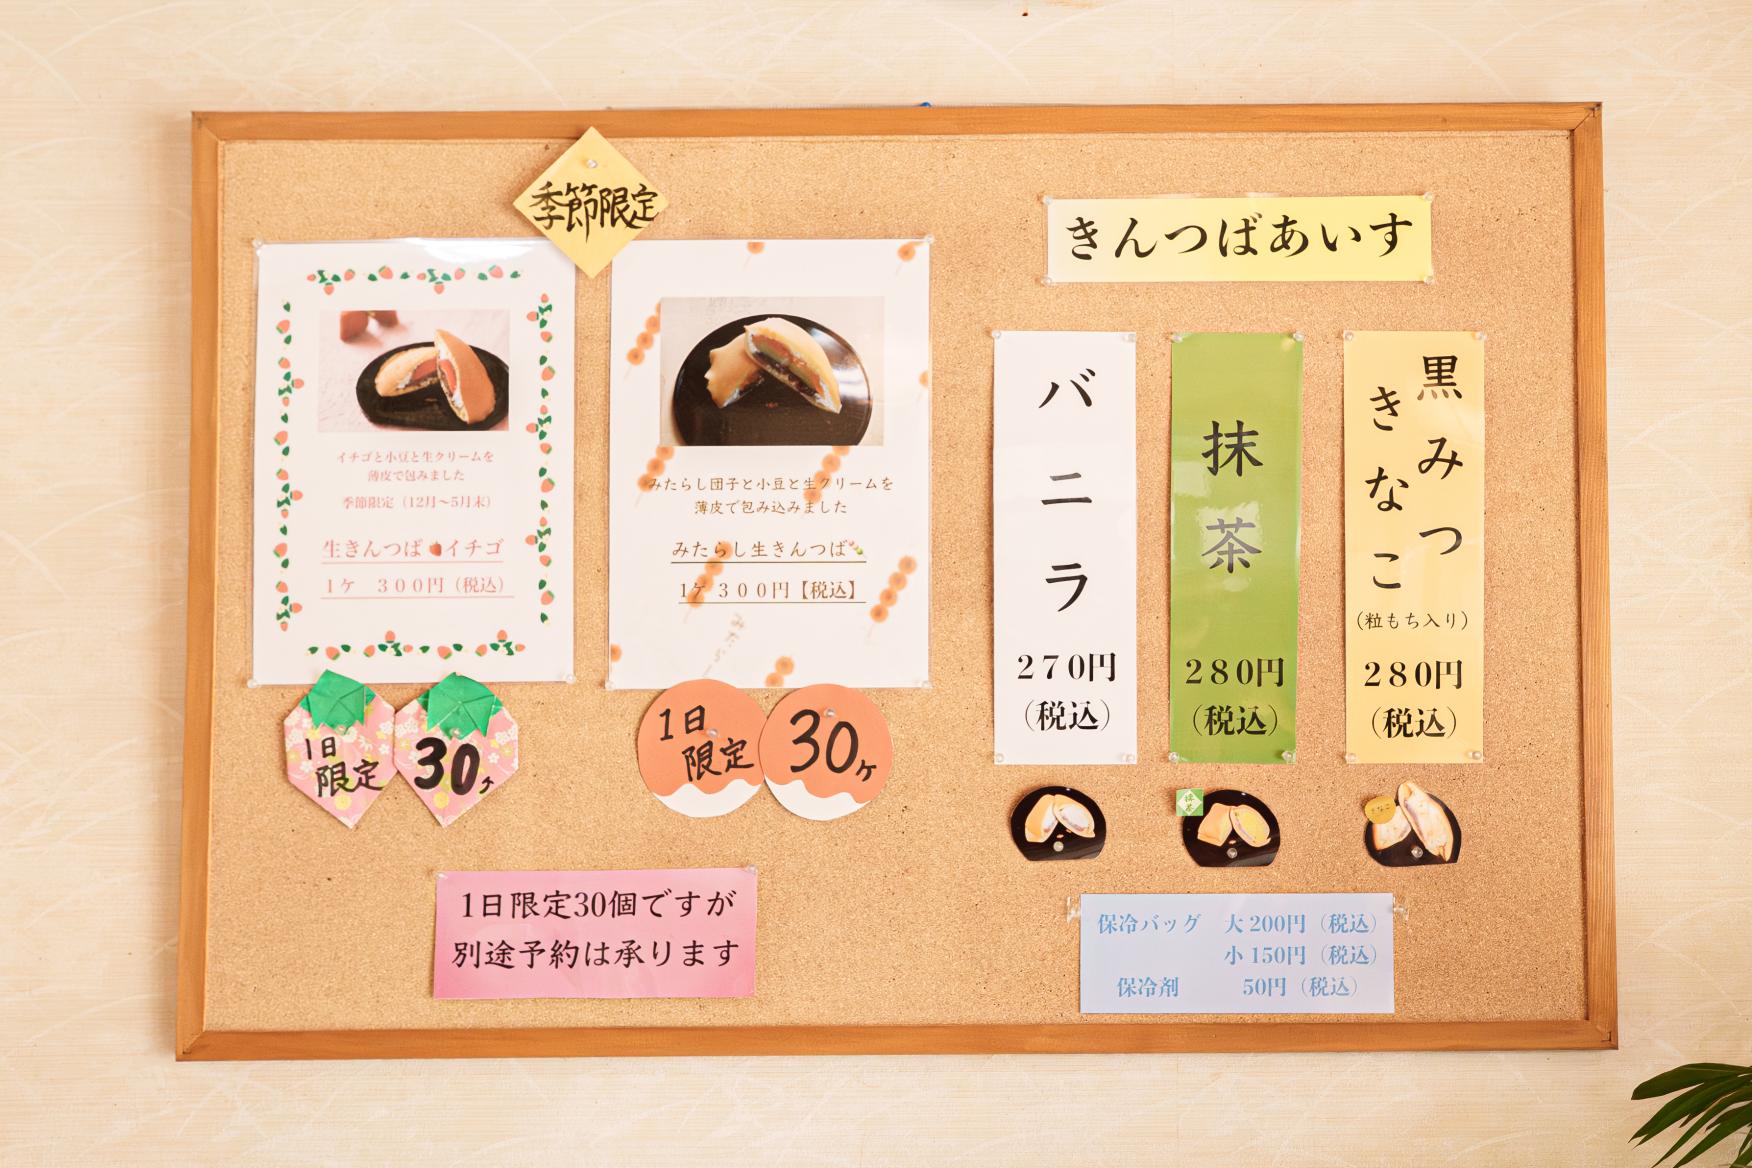 季節限定
イチゴと小豆と生クリームを
薄皮で包みました
季節限定（12月〜5月末）
生きんつば🍓イチゴ
1ケ　３００円（税込）
1日
限定
30ヶ
みたらし団子と小豆と生クリームを
薄皮で包み込みました
みたらし生きんつば🍡
1ケ ３００円【税込】
1日
限定
30ヶ
1日限定30個ですが
別途予約は承ります
きんつばあいす
バニラ
２７０円
（税込）
抹茶
２８０円
（税込）
黒みつ
きなこ
（粒もち入り）
２８０円
（税込）
抹茶
きなこ
保冷バッグ　大 200円（税込）
小 150円（税込）
保冷剤　50円（税込）